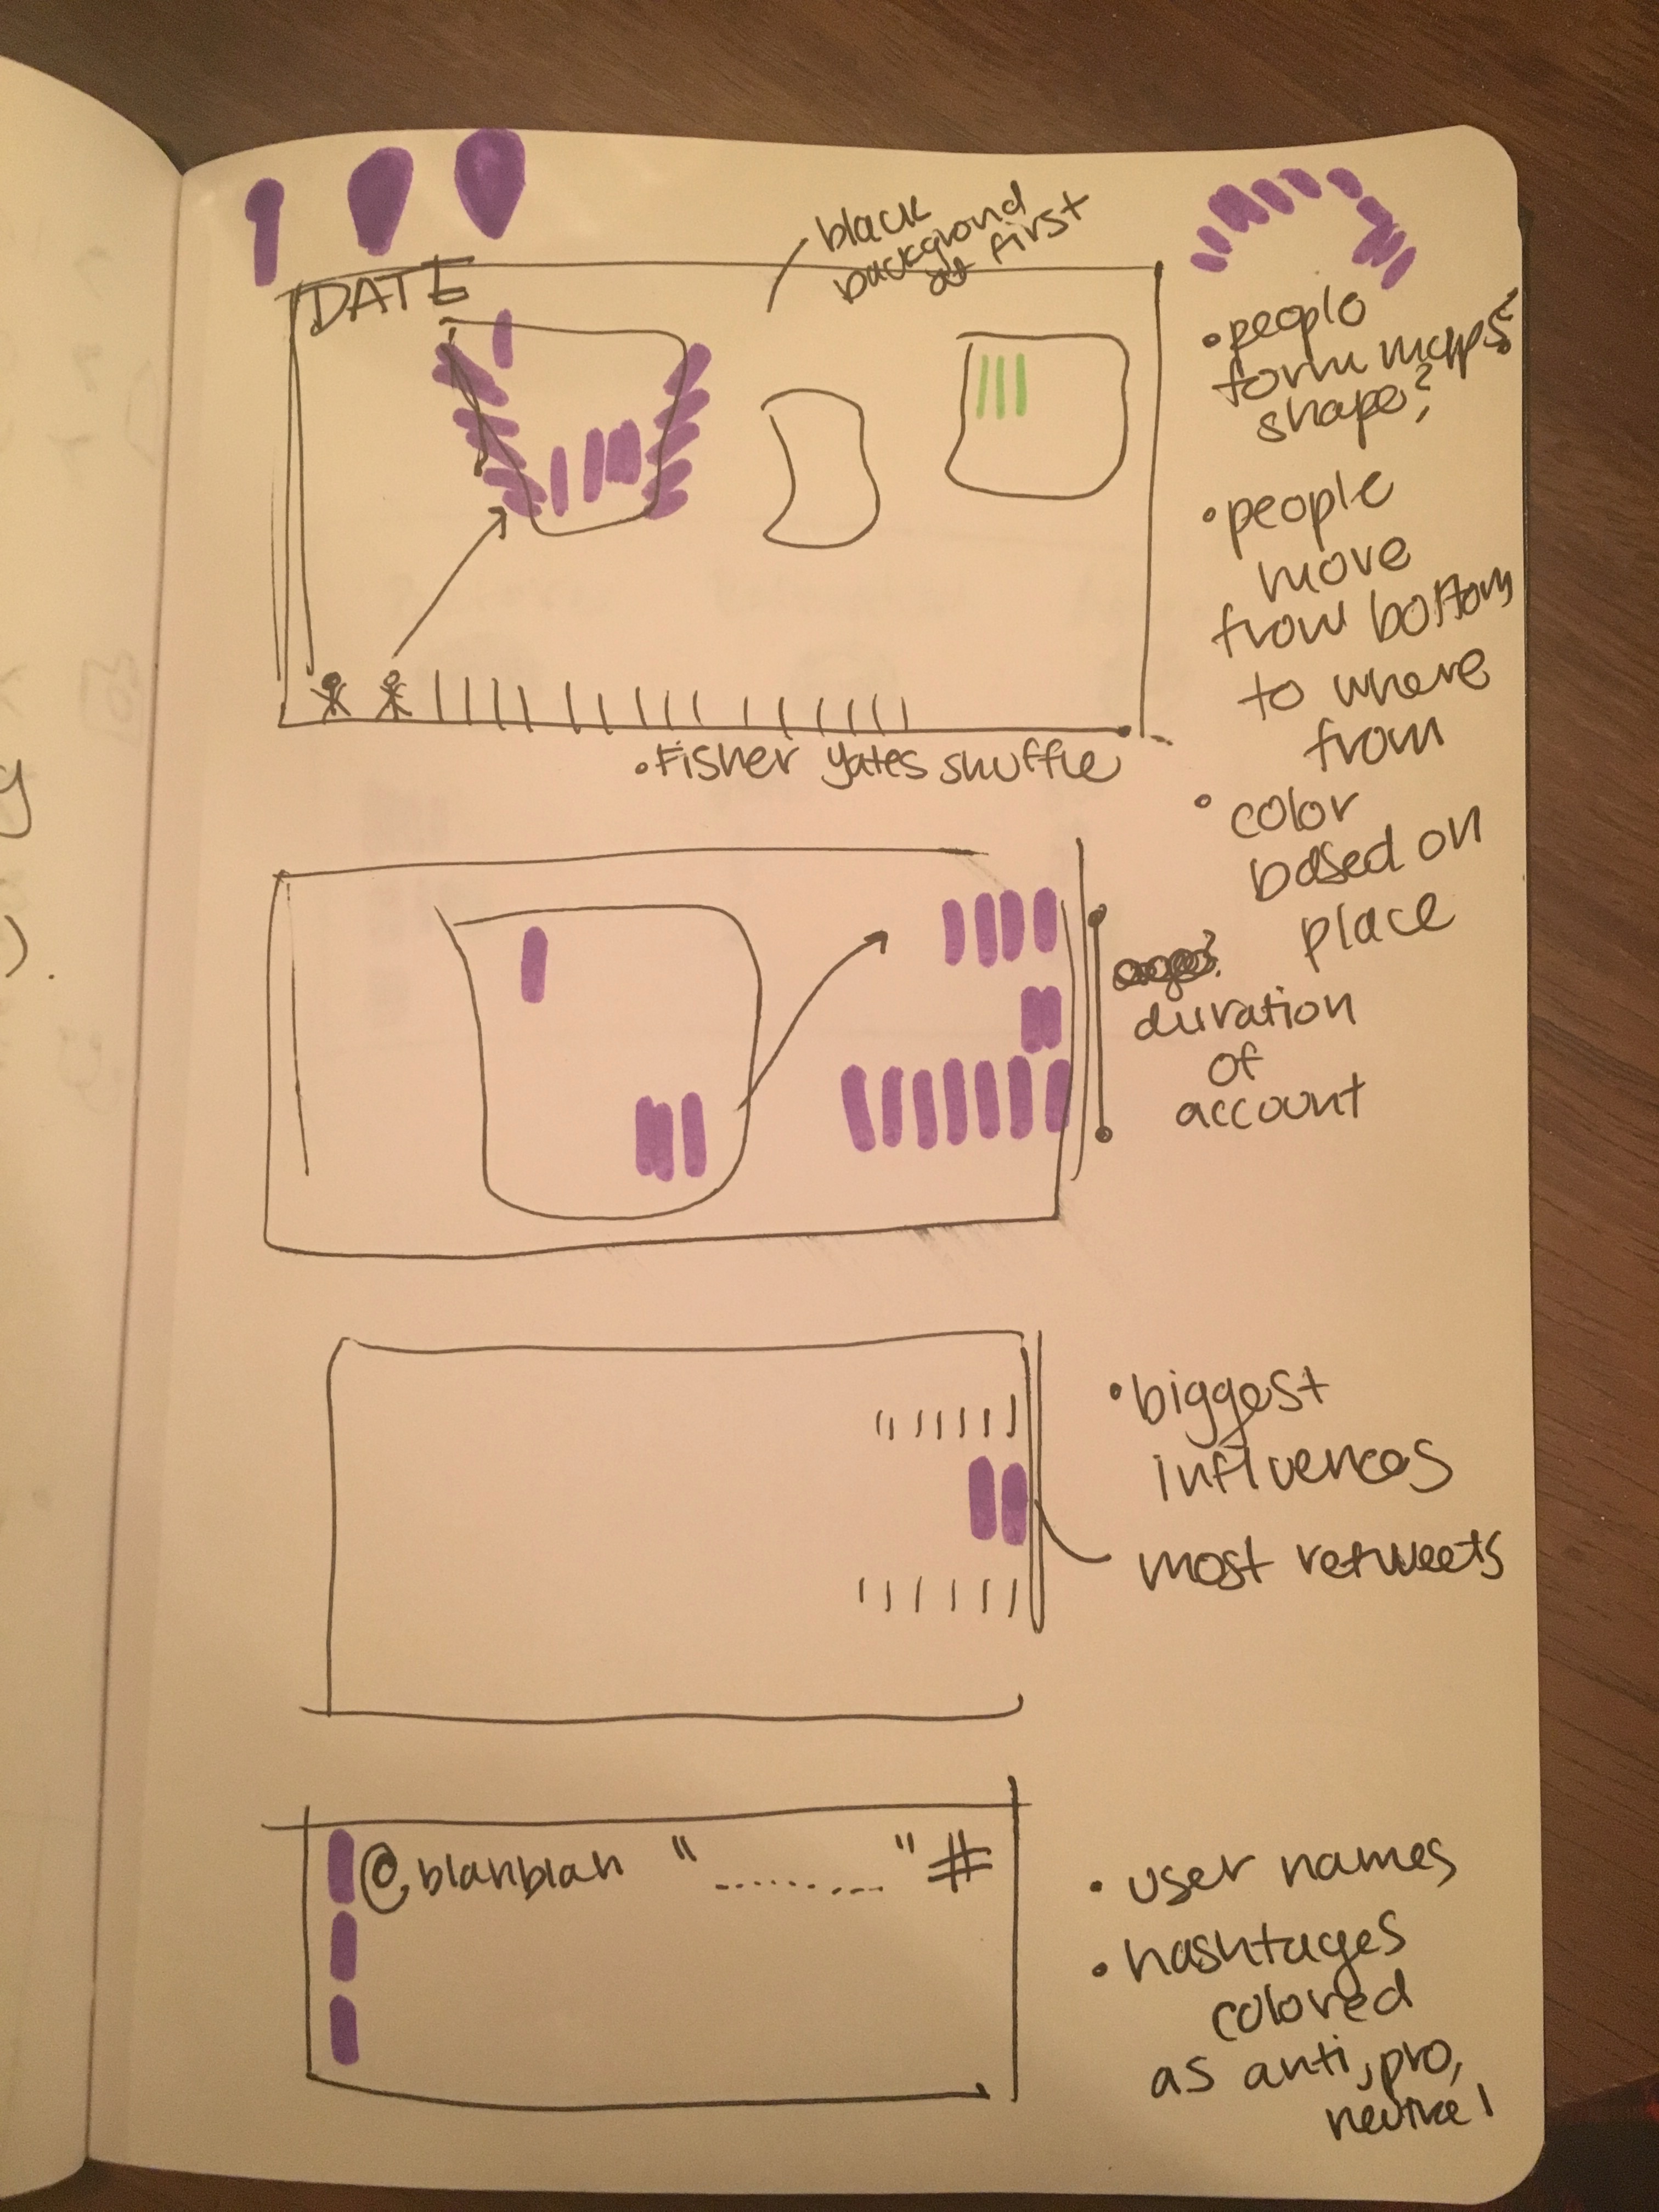 DATE
black
backgrond
at first
• people
form maps
shape?
• people
move
from bottom
to where
from
• color
based on
place
• Fisher Yates shuffle
duration
of
account
• biggest
influences
most retweets
@blahblah " ......... " #
• user names
• hashtages
colored
as anti, pro,